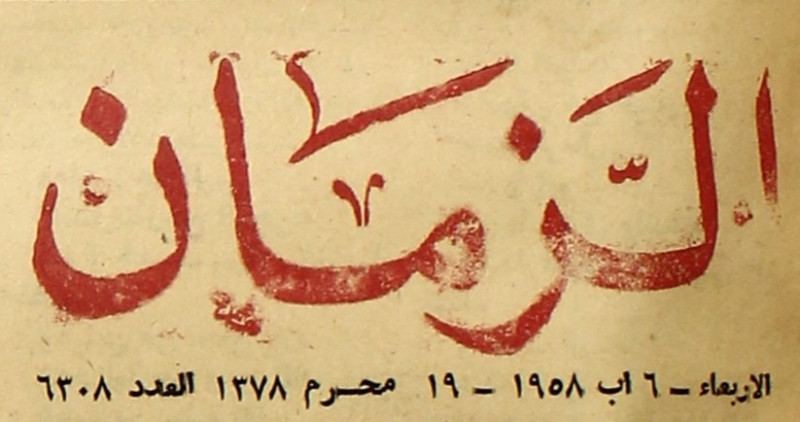 الزمان
الاربعاء ـ ٦ اب ١٩٥٨ ـ ١٩ محرم ١٣٧٨ العدد ٦٣٠٨